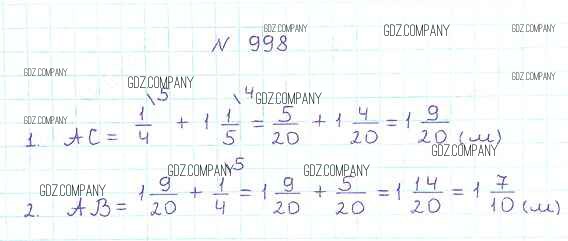 GDZ.COMPANY GDZ.COMPANY GDZ.COMPANY
N 998
GDZ.COMPANY GDZ.COMPANY GDZ.COMPANY
GDZ.COMPANY GDZ.COMPANY
1. AC = 1/4 \5 + 1 1/5 \4 = 5/20 + 1 4/20 = 1 9/20 (м)
GDZ.COMPANY
GDZ.COMPANY GDZ.COMPANY GDZ.COMPANY
2. AB = 1 9/20 + 1/4 \5 = 1 9/20 + 5/20 = 1 14/20 = 1 7/10 (м)